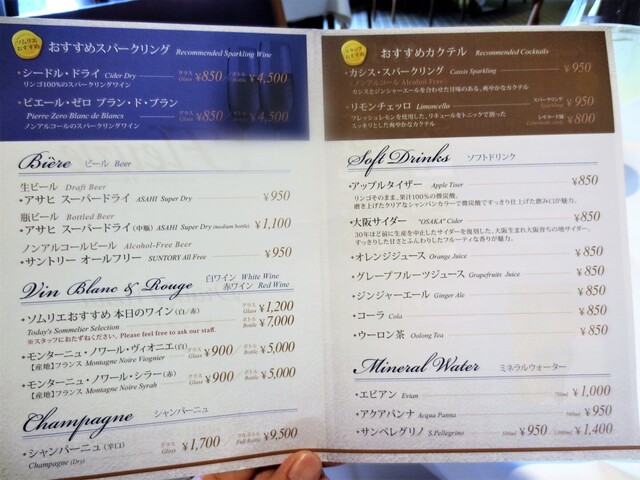 ソムリエ
おすすめ
おすすめスパークリング Recommended Sparkling Wine
・シードル・ドライ Cider Dry グラス Glass ¥850 ボトル Bottle ¥4,500
リンゴ100%のスパークリングワイン
・ピエール・ゼロ ブラン・ド・ブラン
Pierre Zero Blanc de Blancs グラス Glass ¥850 ボトル Bottle ¥4,500
ノンアルコールのスパークリングワイン
Bière ビール Beer
生ビール Draft Beer
・アサヒ スーパードライ ASAHI Super Dry ¥950
瓶ビール Bottled Beer
・アサヒ スーパードライ(中瓶) ASAHI Super Dry (medium bottle) ¥1,100
ノンアルコールビール Alcohol-Free Beer
・サントリー オールフリー SUNTORY All Free ¥950
Vin Blanc & Rouge 白ワイン White Wine
赤ワイン Red Wine
・ソムリエおすすめ 本日のワイン(白/赤) グラス Glass ¥1,200
Today's Sommelier Selection ボトル Bottle ¥7,000
※スタッフにおたずねください。Please feel free to ask our staff.
・モンターニュ・ノワール・ヴィオニエ(白) グラス Glass ¥900 ボトル Bottle ¥5,000
【産地】フランス Montagne Noire Viognier
・モンターニュ・ノワール・シラー(赤) グラス Glass ¥900 ボトル Bottle ¥5,000
【産地】フランス Montagne Noire Syrah
Champagne シャンパーニュ
・シャンパーニュ(辛口) グラス Glass ¥1,700 フルボトル Full Bottle ¥9,500
Champagne (Dry)
おすすめ
おすすめカクテル Recommended Cocktails
・カシス・スパークリング Cassis Sparkling ¥950
ノンアルコール Alcohol Free
カシスとジンジャーエールを合わせた甘味のある、爽やかなカクテル
・リモンチェッロ Limoncello スパークリング ¥950
フレッシュレモンを使用した、リキュールをトニックで割った レモネード風 ¥800
スッキリとした爽やかなカクテル
Soft Drinks ソフトドリンク
・アップルタイザー Apple Tiser ¥850
リンゴそのまま、果汁100%の微炭酸。
磨き上げたクリアなシャンパンカラーで微炭酸ですっきり仕上げた飲み口が魅力。
・大阪サイダー "OSAKA" Cider ¥850
30年ほど前に生産を中止したサイダーを復刻した、大阪生まれ大阪育ちの地サイダー。
すっきりした甘さとふんわりしたフルーティな香りが魅力。
・オレンジジュース Orange Juice ¥850
・グレープフルーツジュース Grapefruits Juice ¥850
・ジンジャーエール Ginger Ale ¥850
・コーラ Cola ¥850
・ウーロン茶 Oolong Tea ¥850
Mineral Water ミネラルウォーター
・エビアン Evian 750ml ¥1,000
・アクアパンナ Acqua Panna 500ml ¥950
・サンペレグリノ S.Pellegrino 500ml ¥950 1,000ml ¥1,400